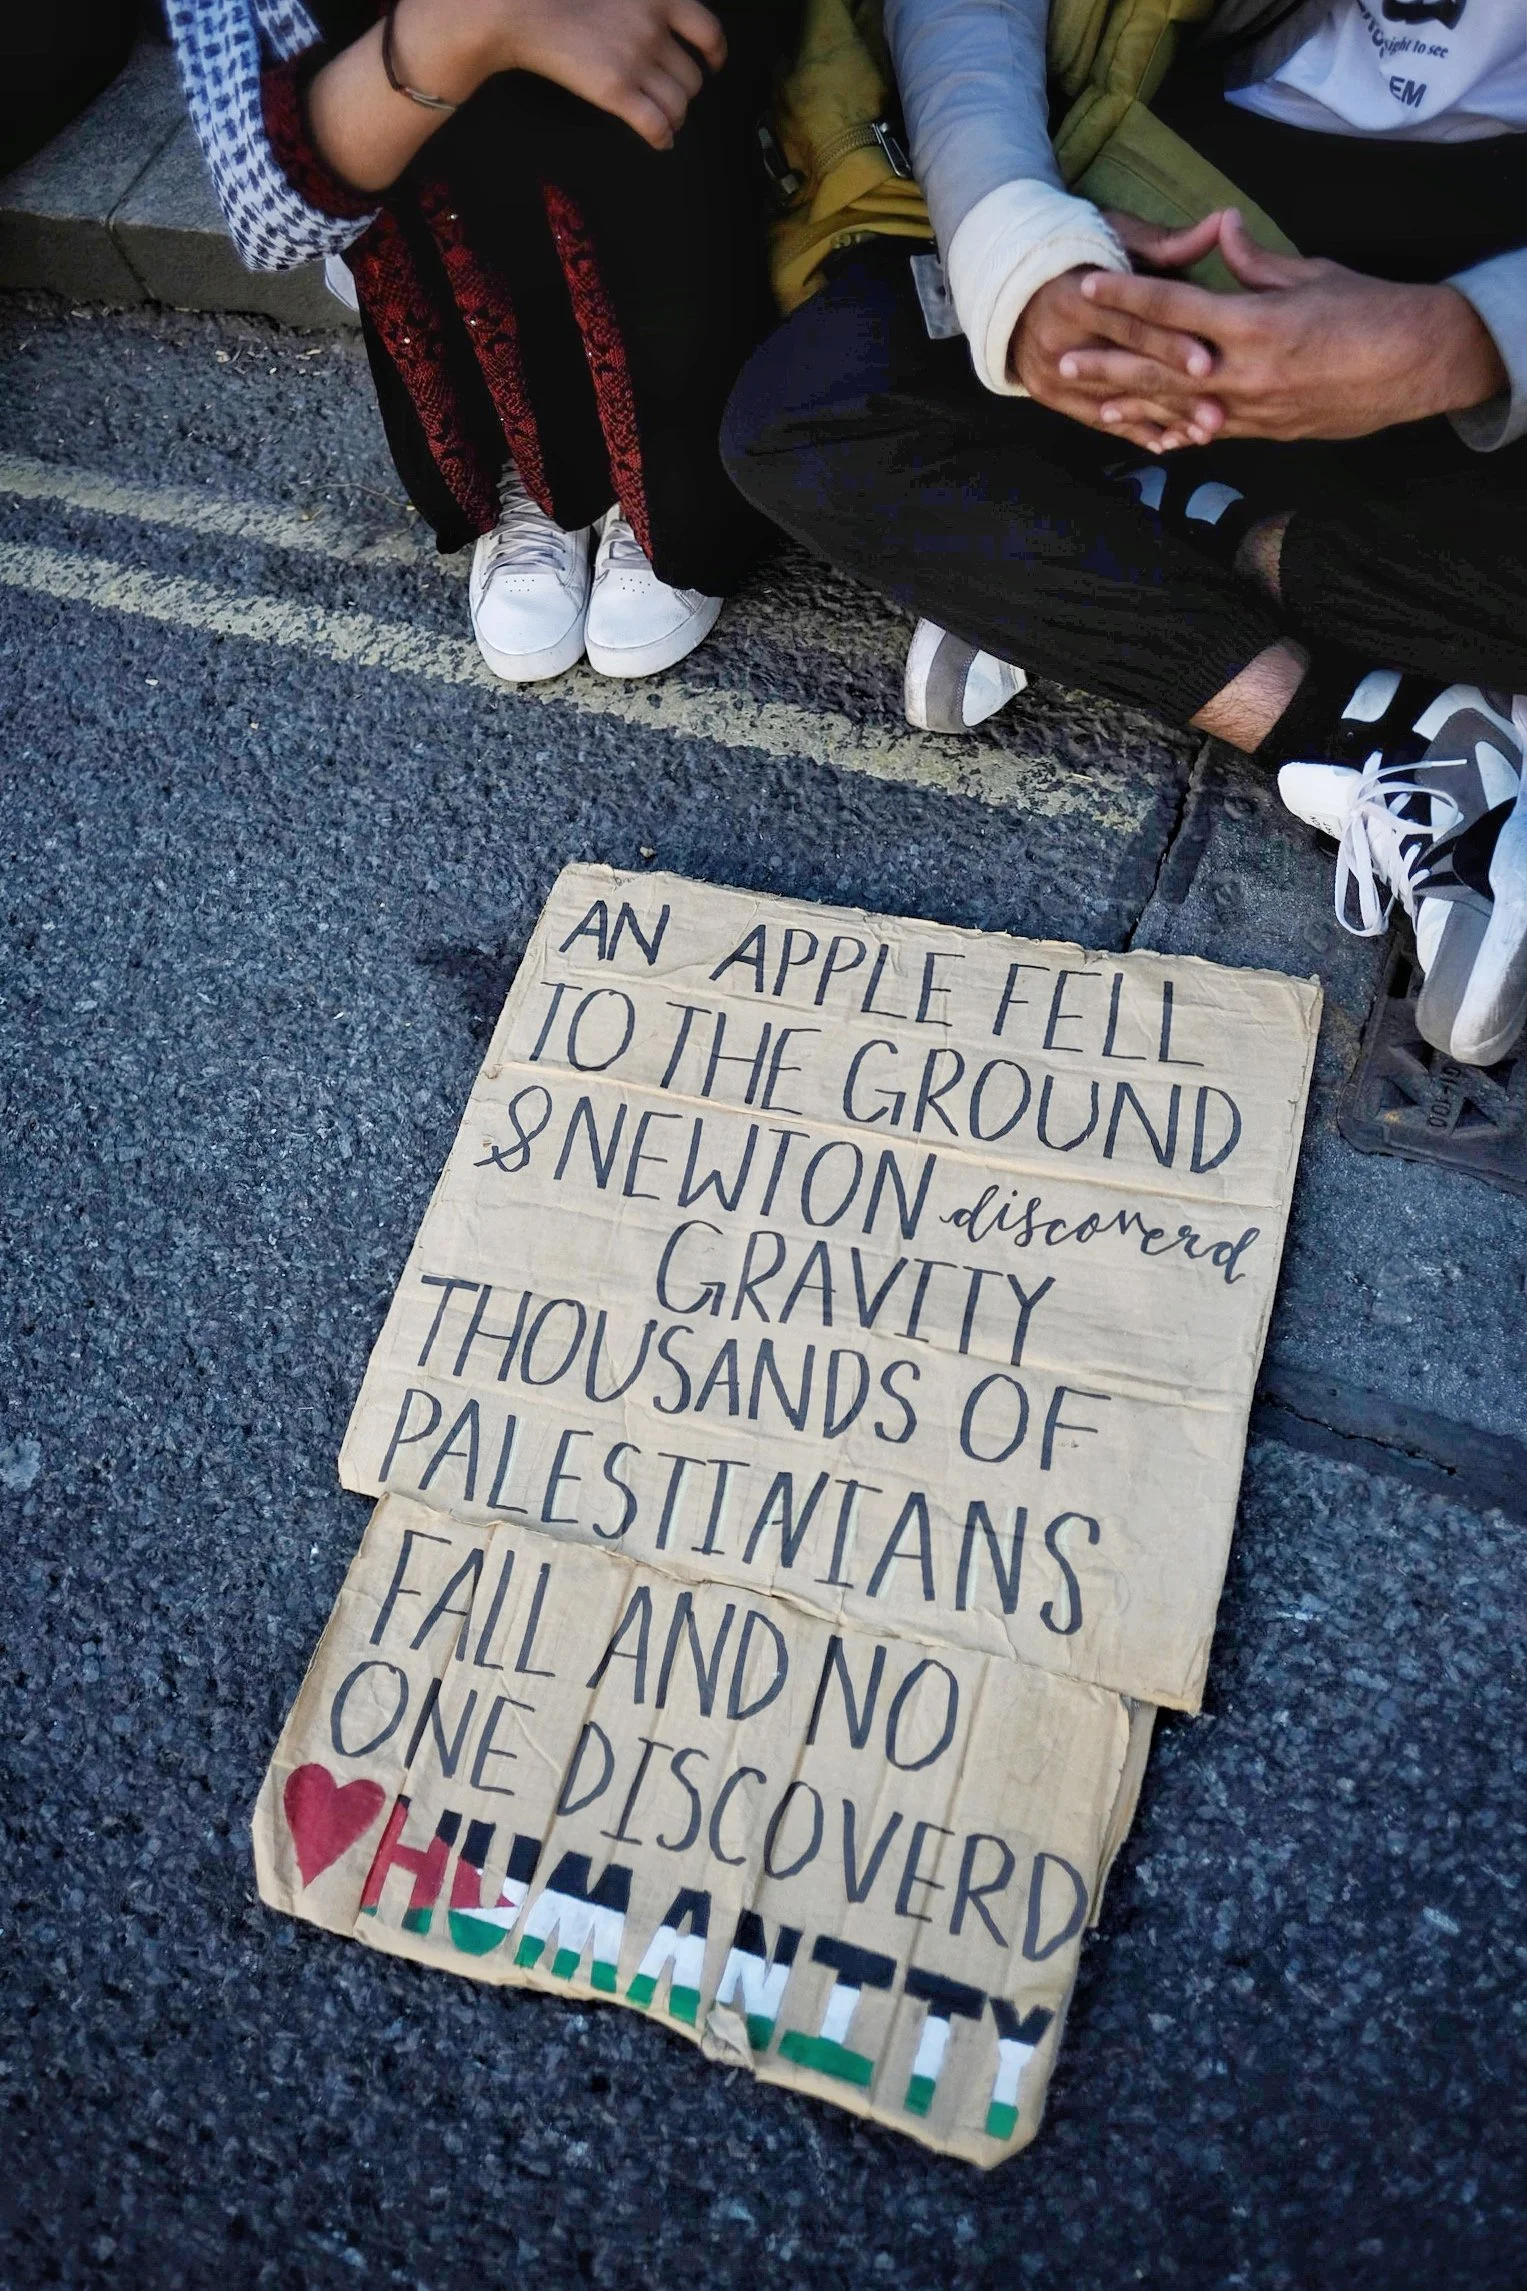 ight to see
EM
AN APPLE FELL
TO THE GROUND
& NEWTON discoverd
GRAVITY
THOUSANDS OF
PALESTINIANS
FALL AND NO
ONE DISCOVERD
HUMANITY